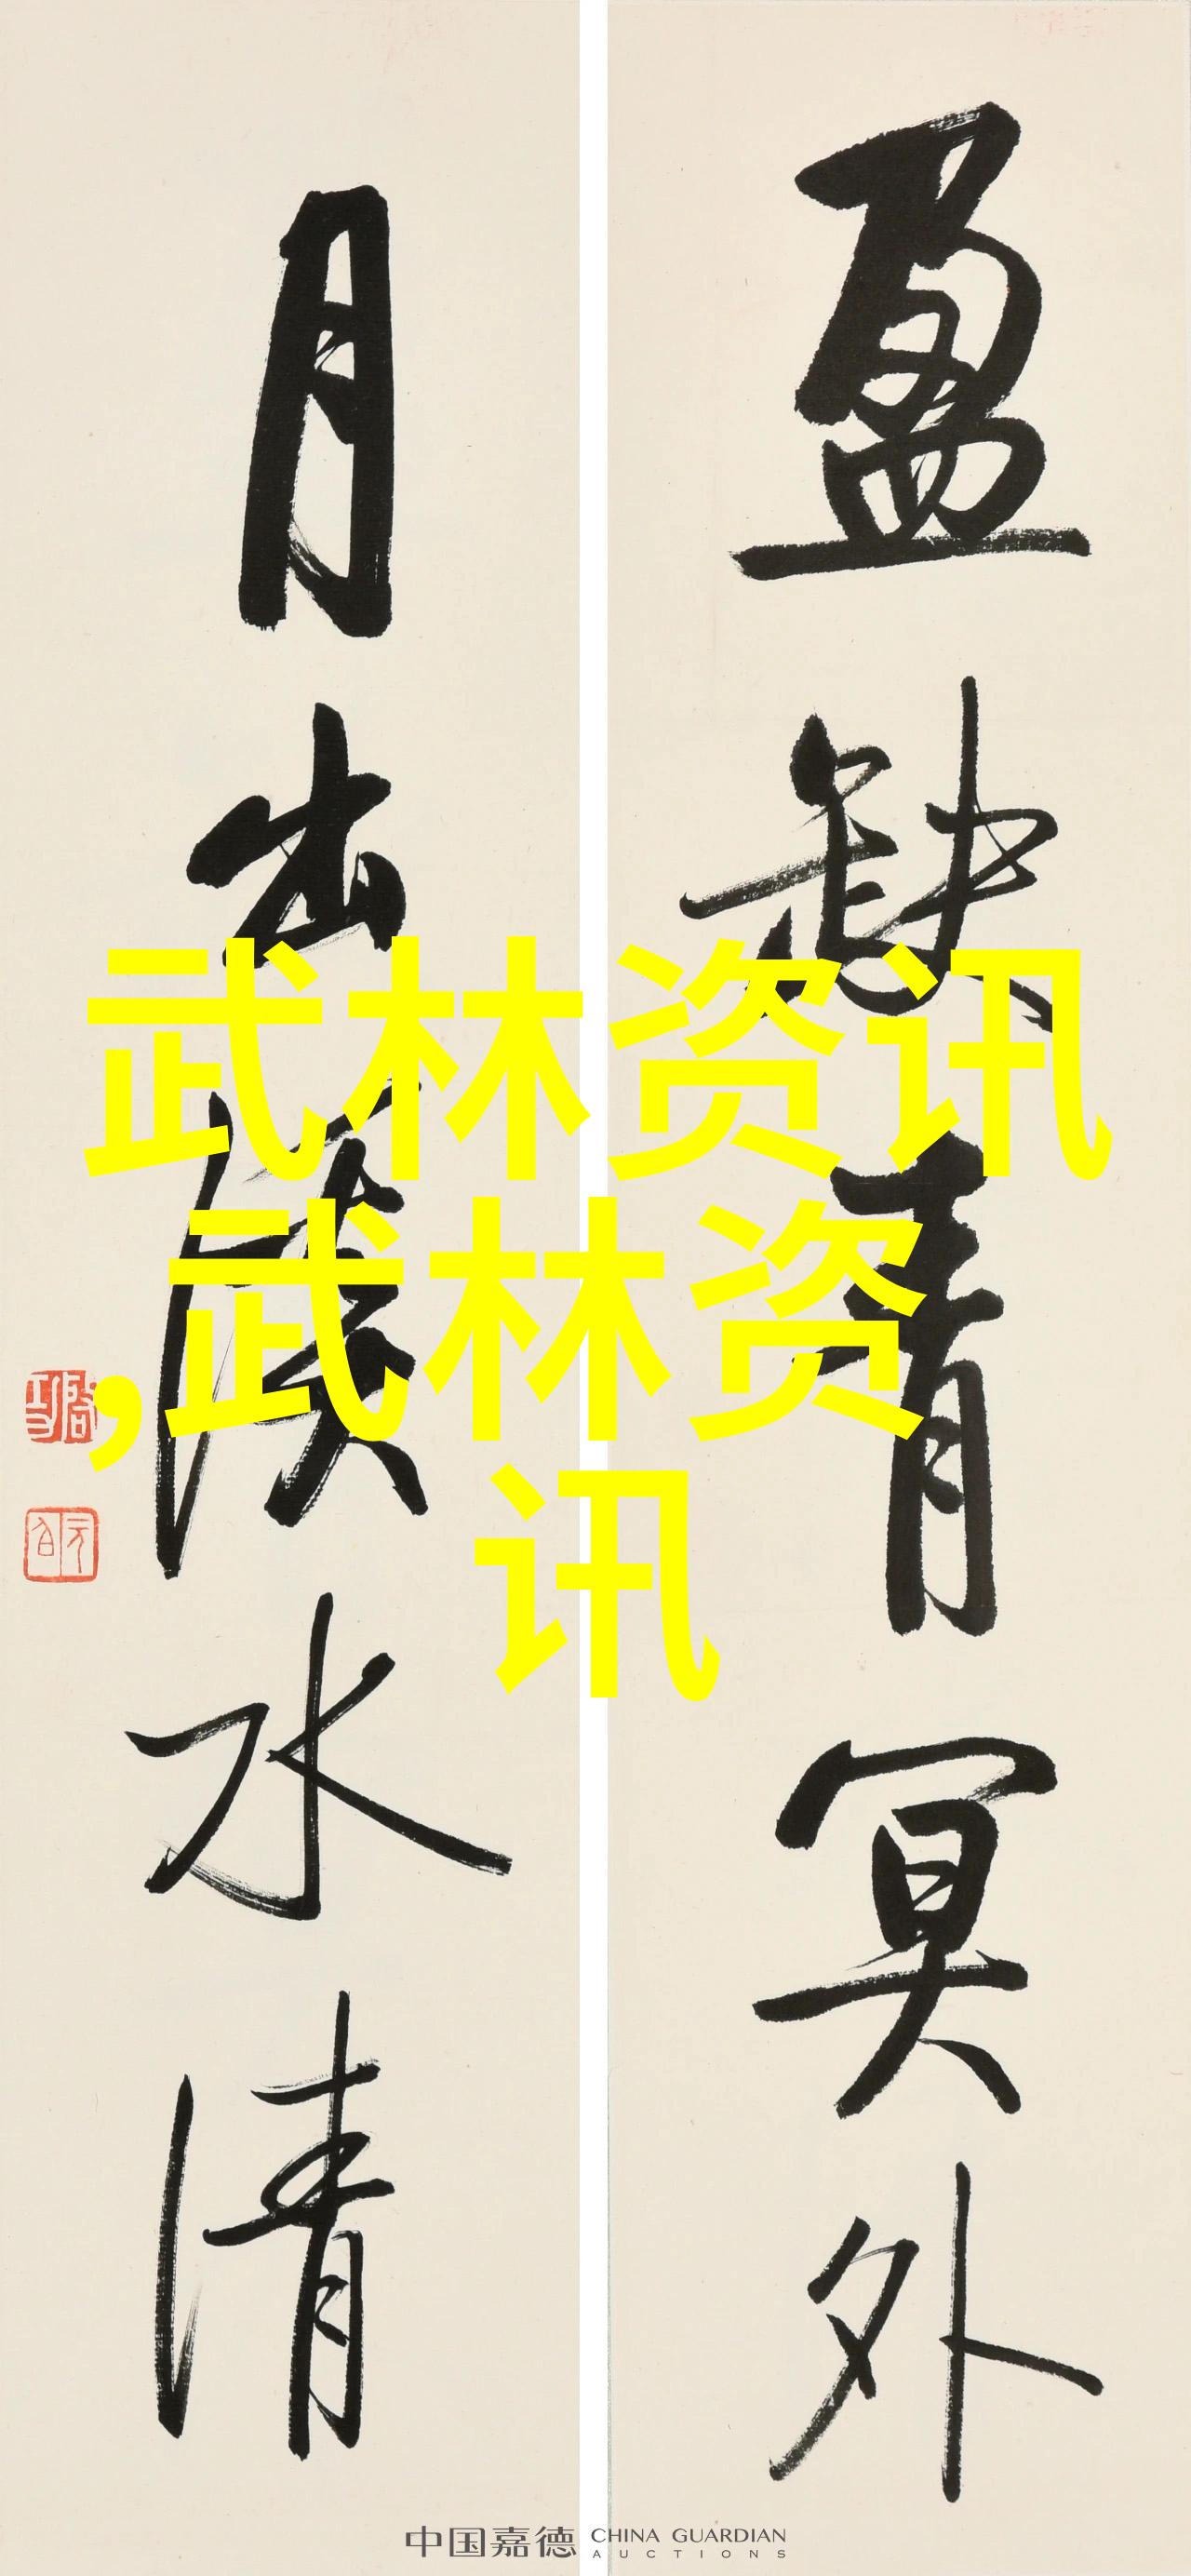 盈缺青冥外
月出水清
元白
武林资讯
,武林资
讯
中国嘉德 CHINA GUARDIAN
AUCTIONS